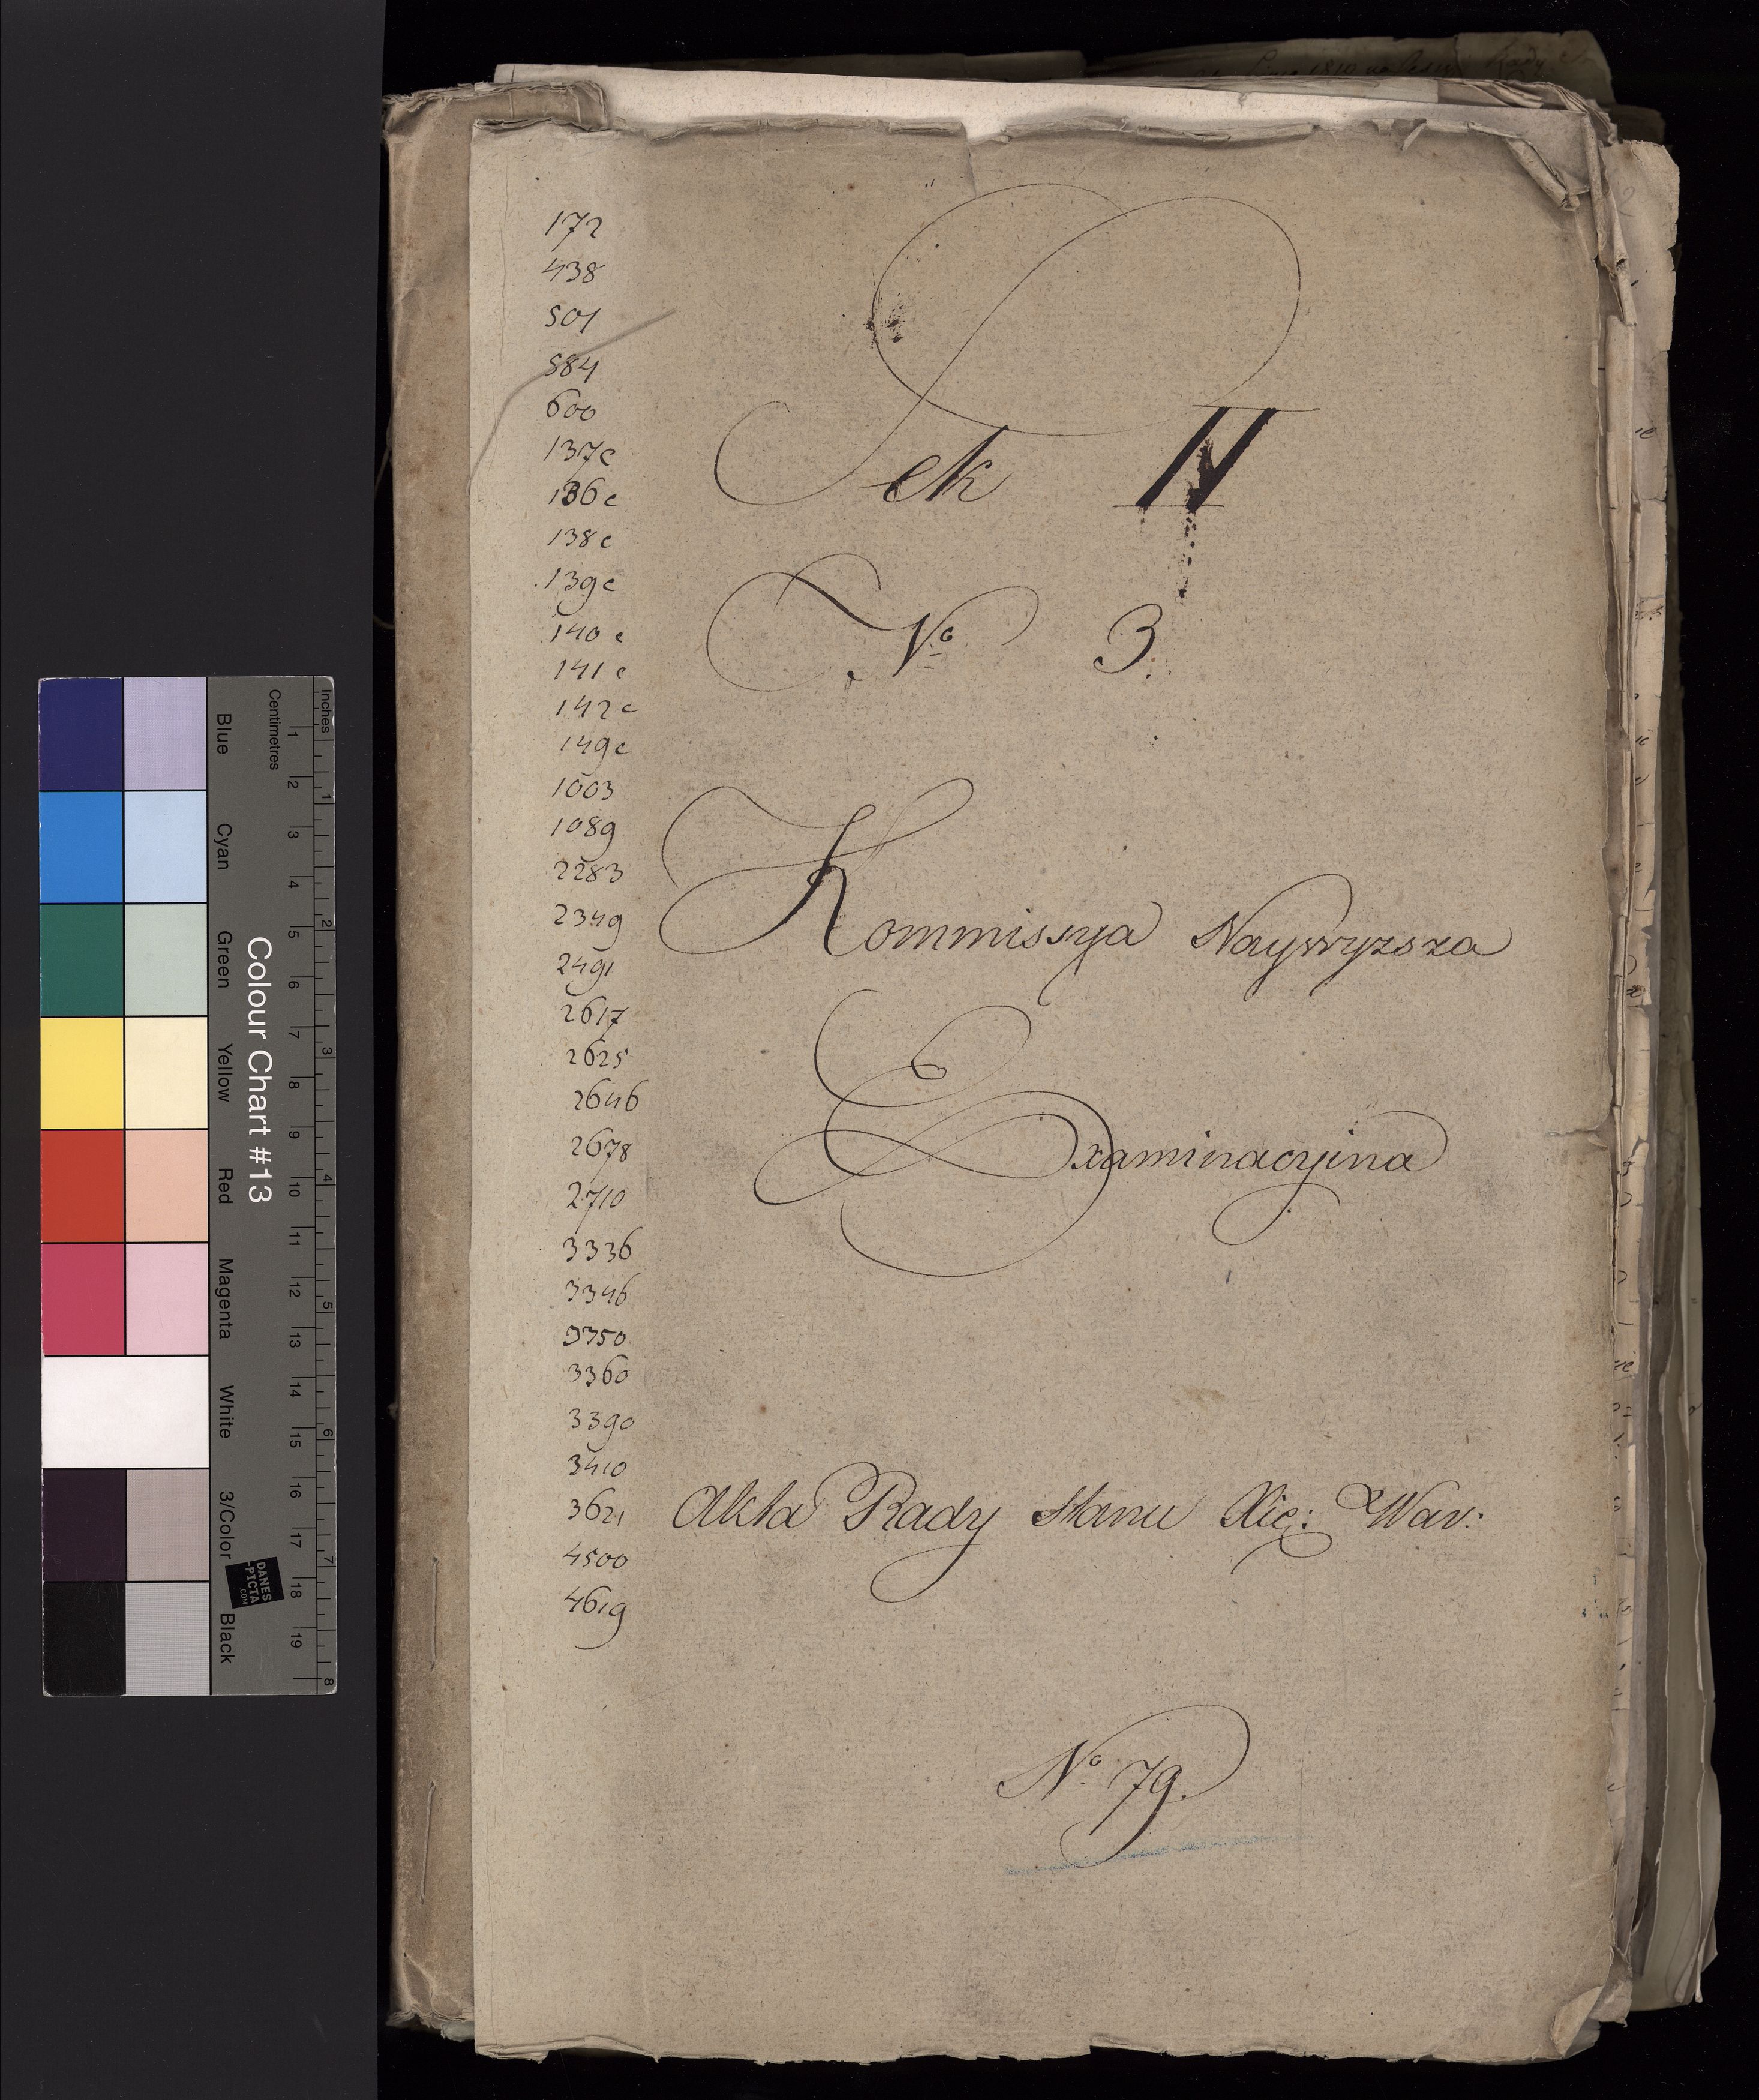 172
438
501
584
600
137c
136c
138c
139c
140c
141c
142c
149c
1003
1089
2283
2349
2491
2617
2625
2646
2678
2710
3336
3346
3350
3360
3390
3410
3621
4500
4619
Sek II
No 3.
Kommissya Naywyzsza
Examinacyina
Akta Rady Stanu Xię: War:
No 79.
Inches
Centimetres
1 2 3 4 5 6 7 8 9 10 11 12 13 14 15 16 17 18 19
1 2 3 4 5 6 7 8
Colour Chart #13
Blue
Cyan
Green
Yellow
Red
Magenta
White
3/Color
Black
DANES
-PICTA
.COM